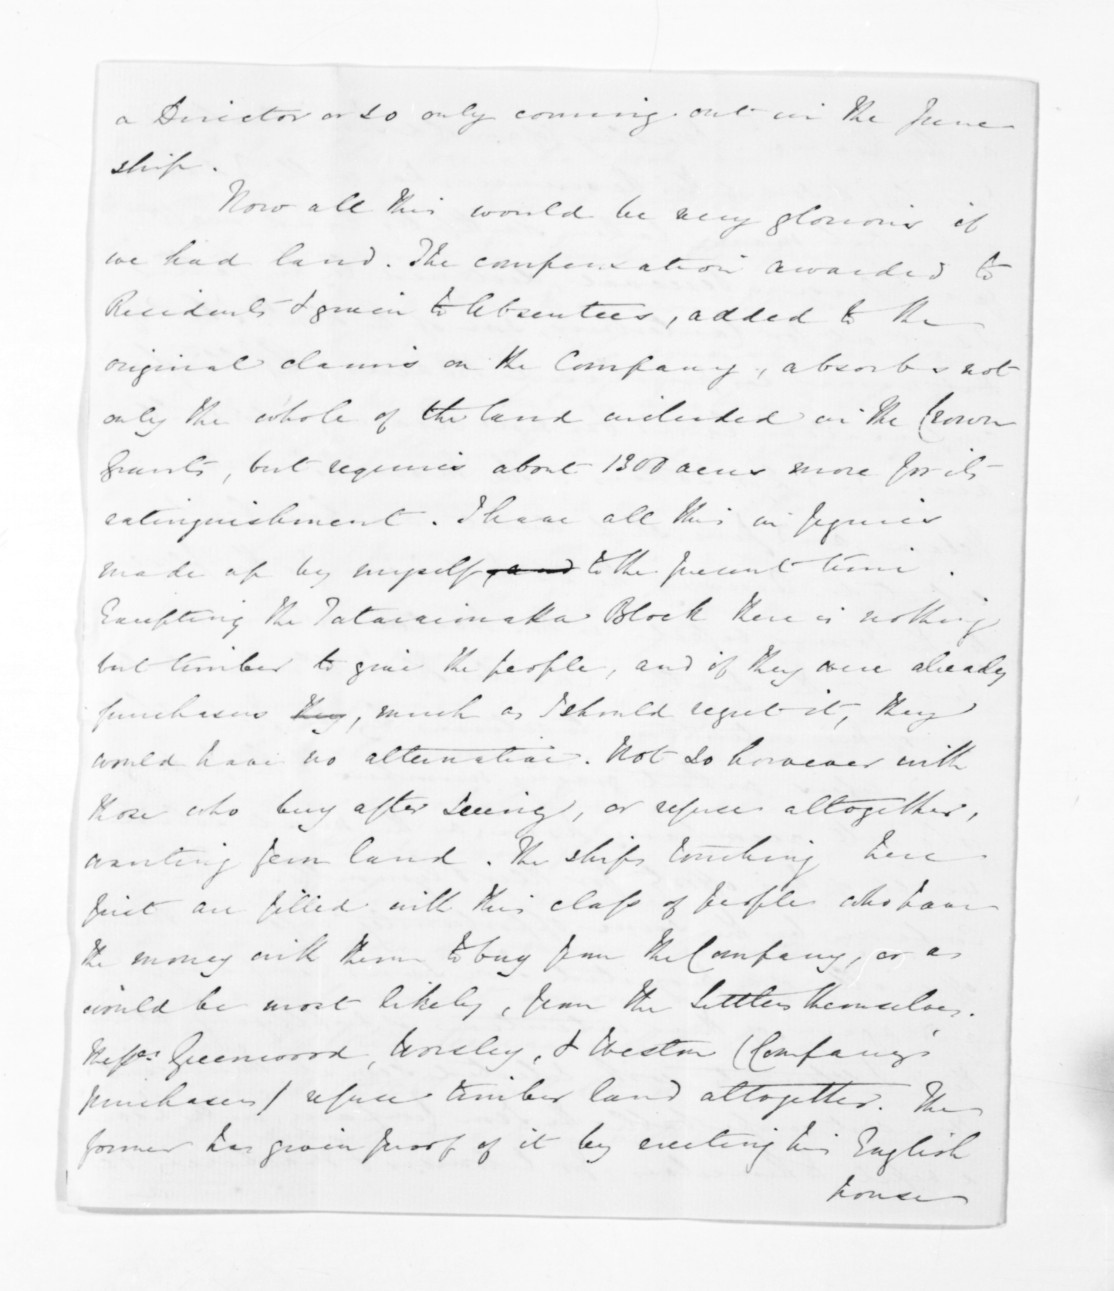 a Director or so only coming out in the June
ship.
Now all this would be very glorious if
we had land. The compensation awarded to
Residents & given to Absentees, added to the
original claims on the Company, absorbs not
only the whole of the land included in the Crown
Grants, but requires about 1300 acres more for its
extinguishment. I have all this in figures
made up by myself, and to the present time.
Excepting the Tataraimaka Block there is nothing
but timber to give the people, and if they were already
purchasers they, much as I should regret it, they
would have no alternative. Not so however with
those who buy after seeing, or refuse altogether,
wanting fern land. The ships touching here
first are filled with this class of people who have
the money with them to buy from the Company, or as
would be most likely, from the Settlers themselves.
Messrs Greenwood, Worsley, & Weston (Company's
purchasers) refuse timber land altogether. The
former has given proof of it by erecting his English
house